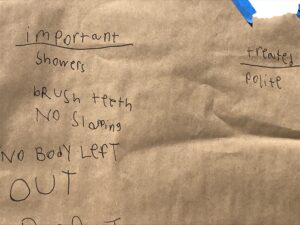 important
Showers
bRUSH teeth
NO Slapping
NO BODY LEFT
OUT
treated
Polite